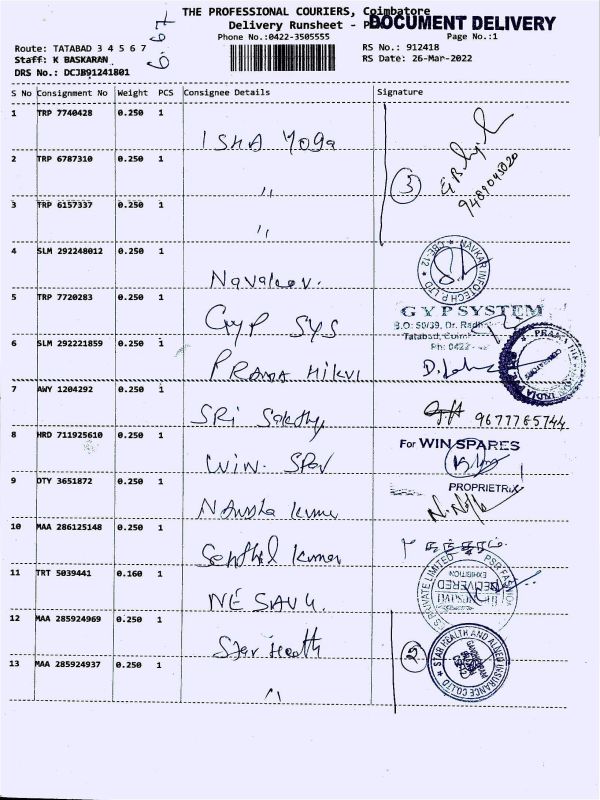 THE PROFESSIONAL COURIERS, Coimbatore
Delivery Runsheet - P
DOCUMENT DELIVERY
Phone No.:0422-3505555
Page No.:1
Route: TATABAD 3 4 5 6 7
RS No.: 912418
Staff: K BASKARAN
RS Date: 26-Mar-2022
DRS No.: DCJB91241801
S No Consignment No Weight PCS Consignee Details Signature
1 TRP 7740428 0.250 1
ISHA Yoga
2 TRP 6787310 0.250 1
〃
3
9489043020
3 TRP 6157337 0.250 1
〃
4 SLM 292248012 0.250 1
NAVKAR INFOTECH P LTD ★ CBE-12 ★
5 TRP 7720283 0.250 1
GYP SYS
G Y P SYSTEM
B.O: 50/39, Dr. Radh
Tatabad, Coim
Ph: 0422
6 SLM 292221859 0.250 1
7 AWY 1204292 0.250 1
SRi Sakthy
9677765744
8 HRD 711925610 0.250 1
WIN. Spar
For WIN SPARES
PROPRIETRIX
9 DTY 3651872 0.250 1
Kumar
10 MAA 286125148 0.250 1
Senthil Kumar
11 TRT 5039441 0.160 1
NESAVU.
PSR FASHIONS PRIVATE LIMITED
EXHIBITION
DELIVERED
12 MAA 285924969 0.250 1
Star Health
2
★ STAR HEALTH AND ALLIED INSURANCE CO LTD ★
13 MAA 285924937 0.250 1
〃